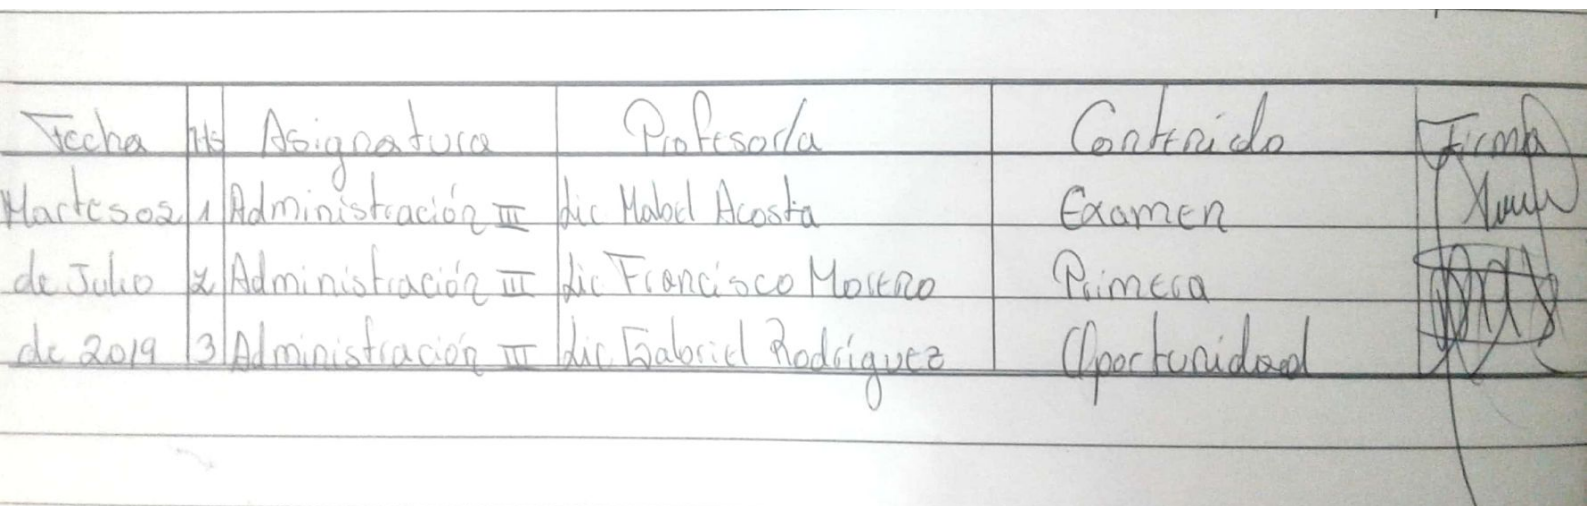 Fecha Hs Asignatura Profesor/a Contenido Firma
Martes 02 1 Administración III Lic Mabel Acosta Examen
de Julio 2 Administración III Lic Francisco Moreno Primera
de 2019 3 Administración III Lic Gabriel Rodríguez Oportunidad